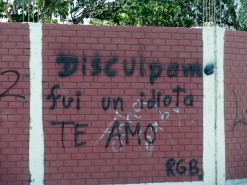 Disculpame
fui un idiota
TE AMO
RGB
2